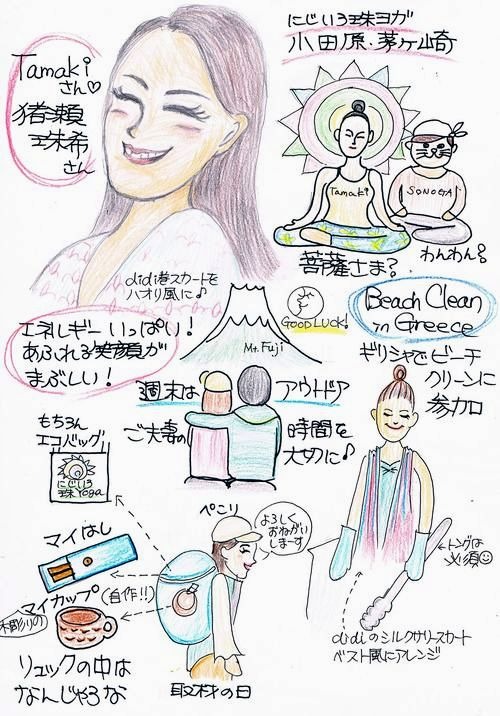 Tamaki
さん♡
猪瀬
珠希
さん
にじいろ珠ヨガ
小田原・茅ヶ崎
Tamaki
SONOETAI
菩薩さま?
わんわん?
didi巻スカートを
ハオリ風に♪
エネルギーいっぱい!
あふれる笑顔が
まぶしい!
GOOD LUCK!
Mt.Fuji
Beach Clean
in Greece
ギリシャでビーチ
クリーンに
参加
週末は
アウトドア
ご夫妻の
時間を
大切に♪
もちろん
エコバッグ
にじいろ
珠Yoga
マイはし
マイカップ(自作!!)
木彫りの
リュックの中は
なんじゃろな
ぺこり
よろしく
おねがい
しまーす
取材の日
トングは
必須☺
didiのシルクサリースカート
ベスト風にアレンジ